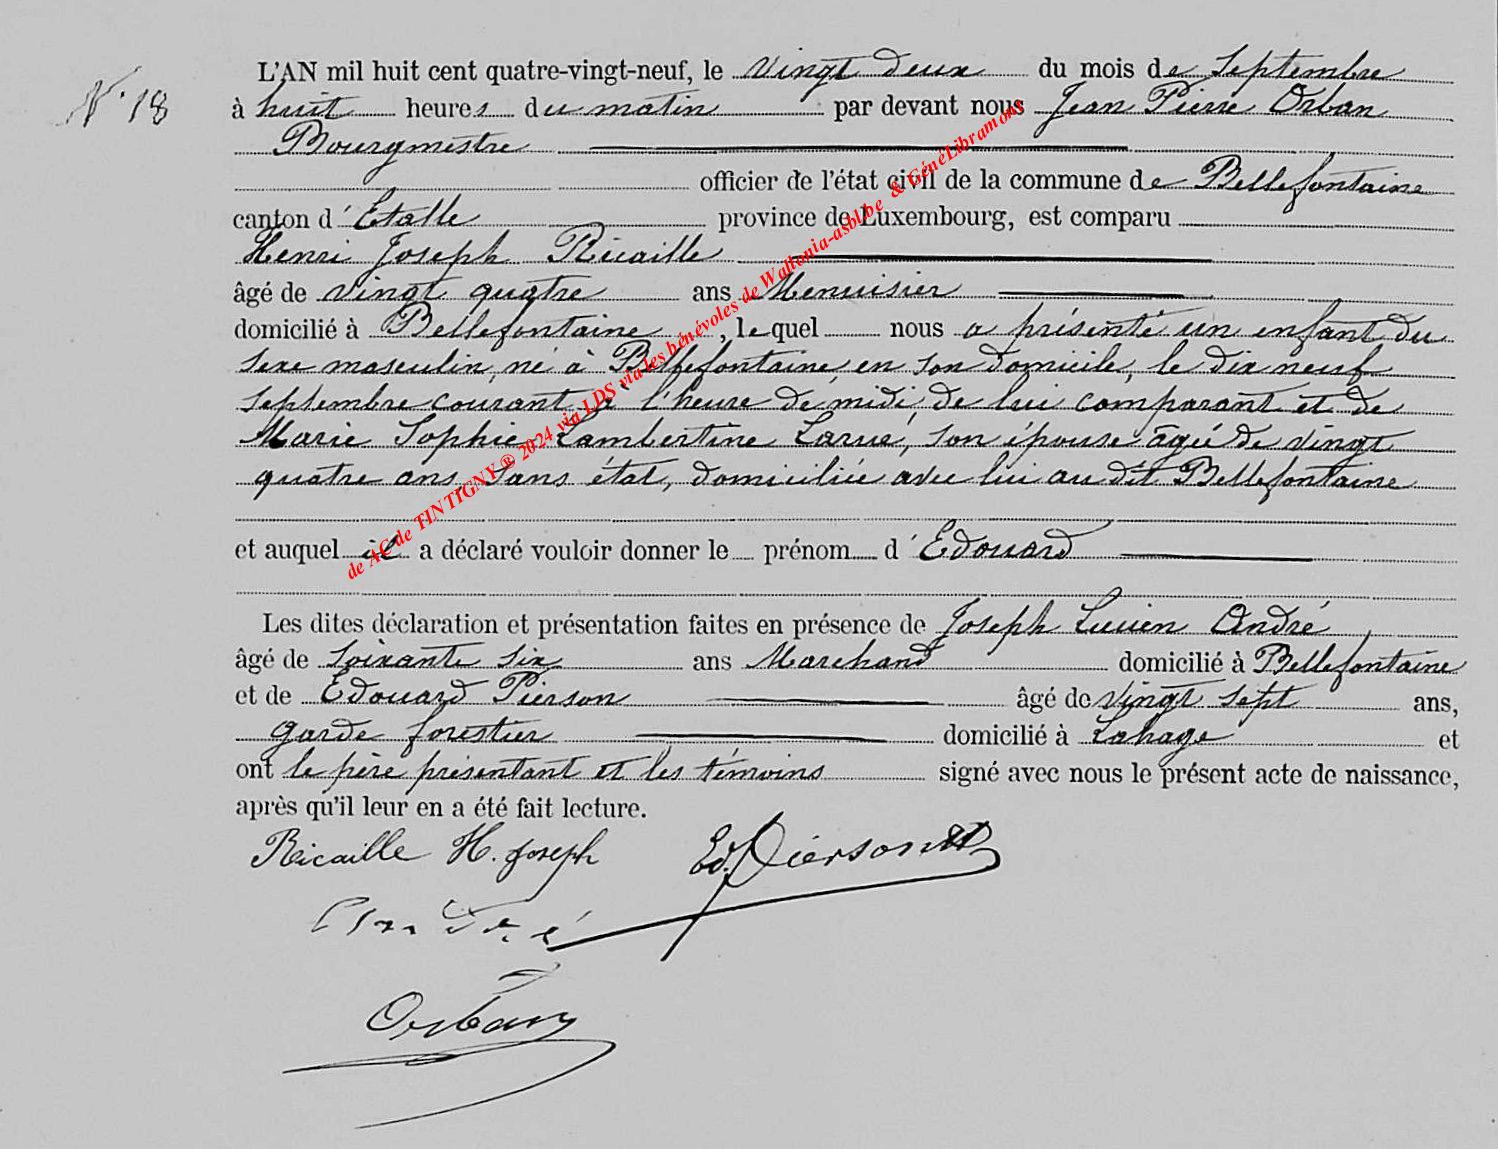 N° 18
L'AN mil huit cent quatre-vingt-neuf, le vingt deux du mois de Septembre
à huit heures du matin par devant nous Jean Pierre Orban
Bourgmestre
officier de l'état civil de la commune de Bellefontaine
canton d'Etalle province de Luxembourg, est comparu
Henri Joseph Ricaille
âgé de vingt quatre ans Menuisier
domicilié à Bellefontaine, lequel nous a présenté un enfant du
sexe masculin, né à Bellefontaine, en son domicile, le dix neuf
septembre courant à l'heure de midi, de lui comparant et de
Marie Sophie Lambertine Larué, son épouse âgée de vingt
quatre ans, sans état, domiciliée avec lui au dit Bellefontaine
et auquel il a déclaré vouloir donner le prénom d'Edouard
Les dites déclaration et présentation faites en présence de Joseph Lucien André,
âgé de soixante six ans Marchand domicilié à Bellefontaine
et de Edouard Pierson âgé de vingt sept ans,
garde forestier domicilié à Lahage et
ont le père présentant et les témoins signé avec nous le présent acte de naissance,
après qu'il leur en a été fait lecture.
Ricaille H. Joseph Ed. Pierson
André
Orban
de AC de TINTIGNY ® 2024 via LDS via les bénévoles de Wallonia-asbl.be & GénéLibramont